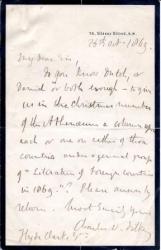 76, Sloane Street, S.W.
26th Oct. 1869.
My dear Sir,
Do you know Dutch, or
Danish or both enough to give
us in the Christmas number
of the Athenaeum a column
each or one on either of those
countries under a general group
of "Literature of Foreign Countries
in 1869."? Please answer by
return. Most Sincerely Yours
Charles W. Dilke
Hyde Clarke, Esq.